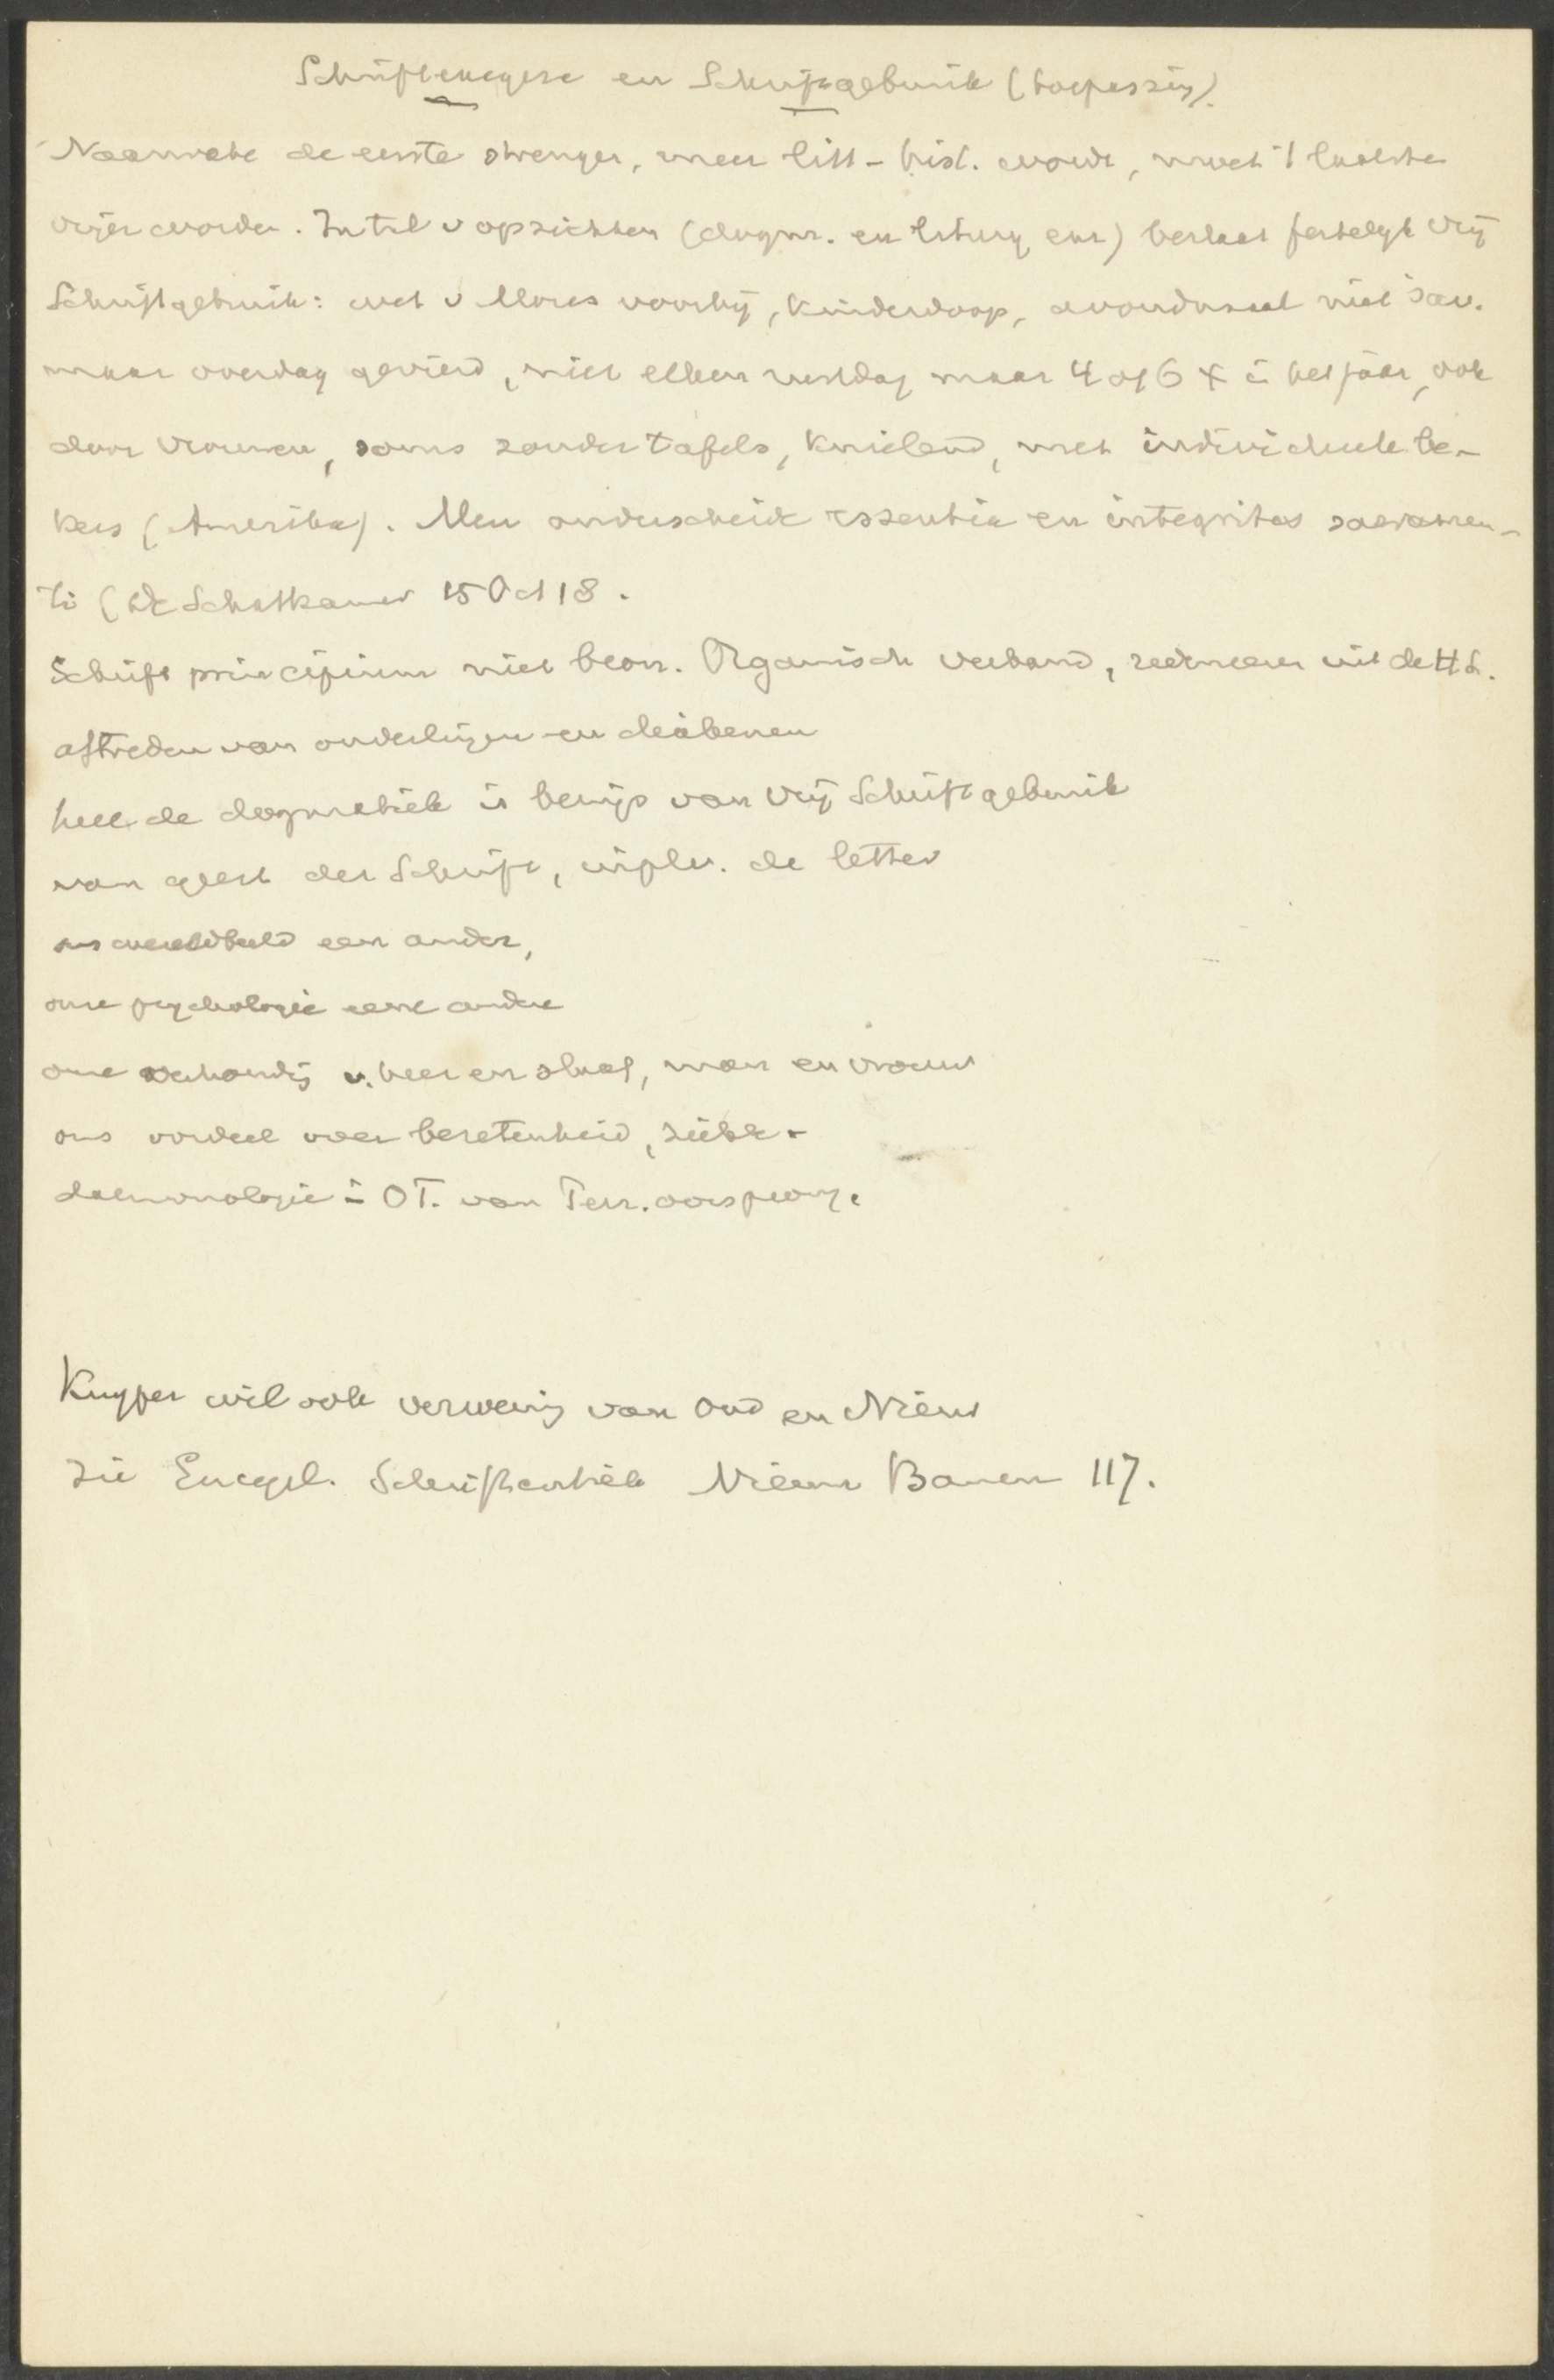 Schriftexegese en Schriftgebruik (toepassing).
Naarmate de eerste strenger, meer litt-hist. wordt, moet 't laatste
vrijer worden. In tal v opzichten (dogm. en liturg enz) bestaat feitelijk vrij
Schriftgebruik: wet v Mozes voorbij, kinderdoop, avondmaal niet 's av.
maar overdag gevierd, niet elken rustdag maar 4 of 6 x i het jaar, ook
door vrouwen, soms zonder tafels, knielend, met individueele be-
kers (Amerika). Men onderscheide essentia en integritas sacramen-
ti (De Schatkamer 15 Oct 18.
Schrift principium niet bron. Organisch verband, redeneeren uit de H S.
aftreden van ouderlingen en diakenen
heel de dogmatiek is bewijs van vrij Schriftgebruik
van geest der Schrift, inplv. de letter
ons wereldbeeld een ander,
onze psychologie eene andere
onze verhoudg v. heer en slaaf, man en vrouw
ons oordeel over bezetenheid, ziekte -
daemonologie i OT. van Perz. oorsprong.
Kuyper wil ook verweving van Oud en Nieuw
Zie Encycl. Schriftcritiek Nieuwe Banen 117.